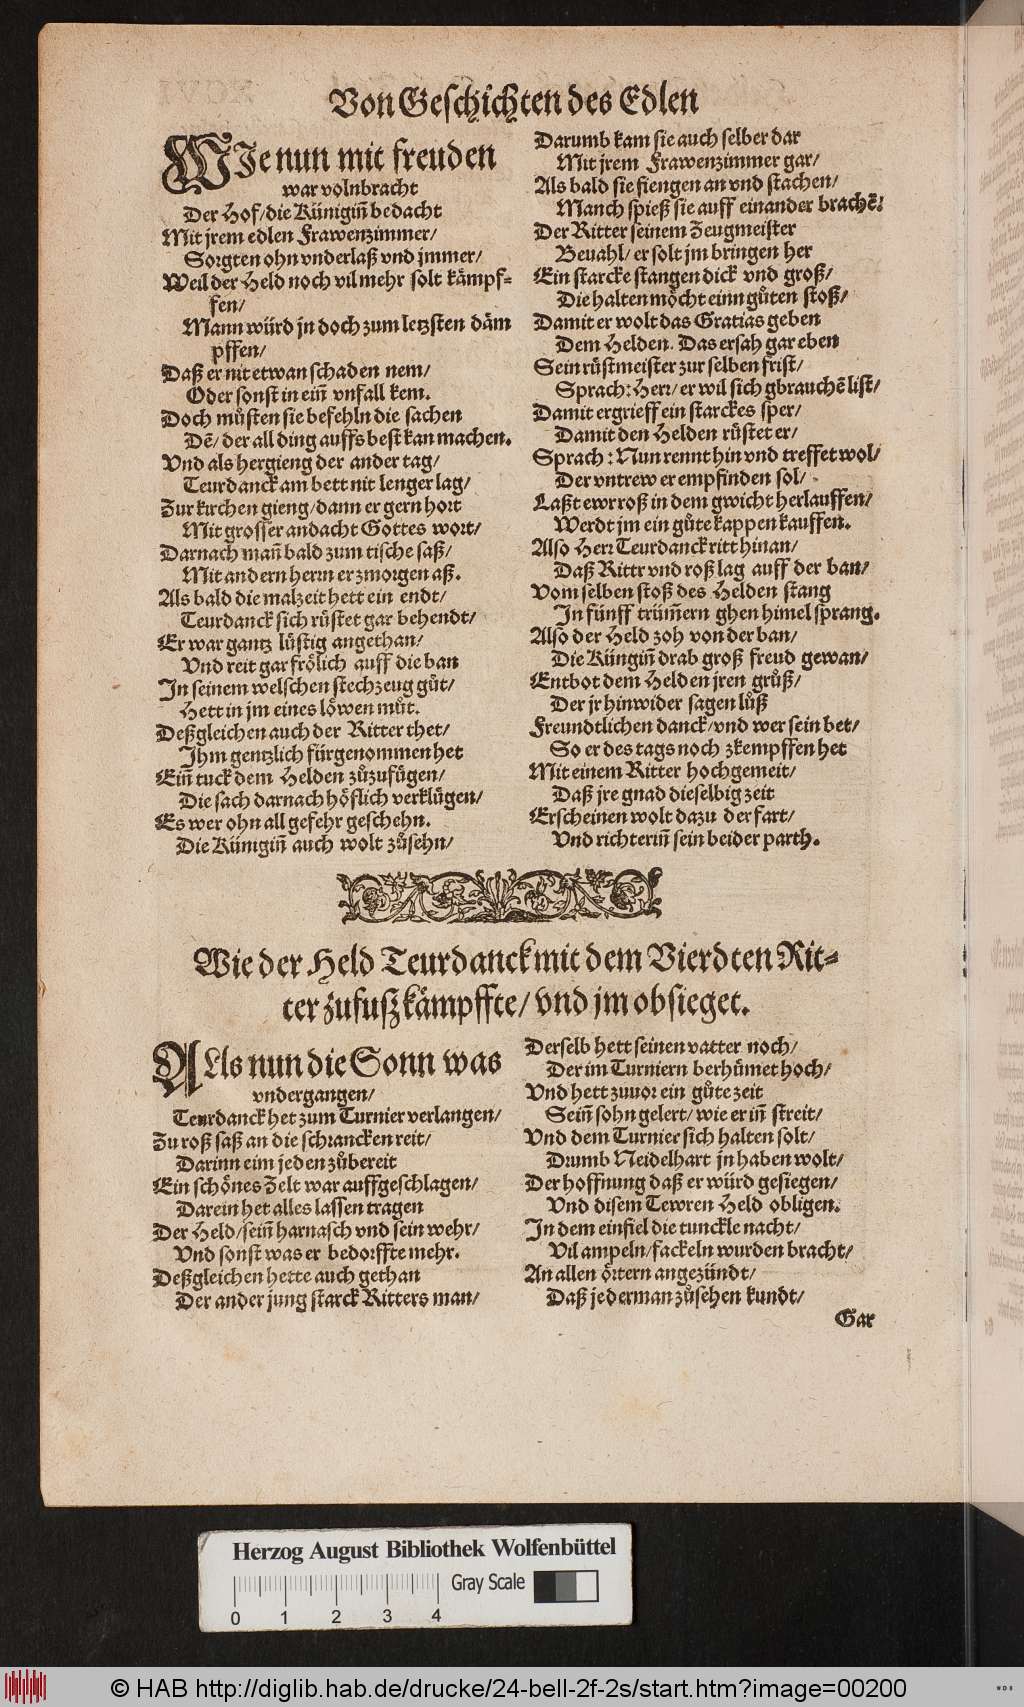 Von Geschichten des Edlen
WJe nun mit freuden
war volnbracht
Der Hof/die Künigiñ bedacht
Mit jrem edlen Frawenzimmer/
Sorgten ohn vnderlaß vnd jmmer/
Weil der Held noch vil mehr solt kämpf-
fen/
Mann würd jn doch zum letzsten däm
pffen/
Daß er nit etwan schaden nem/
Oder sonst in eiñ vnfall kem.
Doch müsten sie befehln die sachen
Dẽ/ der all ding auffs best kan machen.
Vnd als hergieng der ander tag/
Teurdanck am bett nit lenger lag/
Zur kirchen gieng/dann er gern hort
Mit grosser andacht Gottes wort/
Darnach mañ bald zum tische saß/
Mit andern herrn er zmorgen aß.
Als bald die malzeit hett ein endt/
Teurdanck sich rüstet gar behendt/
Er war gantz lüstig angethan/
Vnd reit gar frölich auff die ban
In seinem welschen stechzeug gůt/
Hett in jm eines löwen můt.
Deßgleichen auch der Ritter thet/
Ihm gentzlich fürgenommen het
Eiñ tuck dem Helden zůzufügen/
Die sach darnach höflich verklügen/
Es wer ohn all gefehr geschehn.
Die Künigiñ auch wolt zůsehn/
Darumb kam sie auch selber dar
Mit jrem Frawenzimmer gar/
Als bald sie fiengen an vnd stachen/
Manch spieß sie auff einander brachẽ/
Der Ritter seinem Zeugmeister
Beuahl/ er solt jm bringen her
Ein starcke stangen dick vnd groß/
Die halten möcht einn gůten stoß/
Damit er wolt das Gratias geben
Dem Helden. Das ersah gar eben
Sein rüstmeister zur selben frist/
Sprach: Herr/ er wil sich gbrauchẽ list/
Damit ergrieff ein starckes sper/
Damit den Helden rüstet er/
Sprach: Nun rennt hin vnd treffet wol/
Der vntrew er empfinden sol/
Laßt ewr roß in dem gwicht herlauffen/
Werdt jm ein gůte kappen kauffen.
Also Herr Teurdanck ritt hinan/
Daß Rittr vnd roß lag auff der ban/
Vom selben stoß des Helden stang
In fünff trüm̃ern ghen himel sprang.
Also der Held zoh von der ban/
Die Küngiñ drab groß freud gewan/
Entbot dem Helden jren grůß/
Der jr hinwider sagen lůß
Freundtlichen danck/vnd wer sein bet/
So er des tags noch zkempffen het
Mit einem Ritter hochgemeit/
Daß jre gnad dieselbig zeit
Erscheinen wolt dazu der fart/
Vnd richteriñ sein beider parth.
Wie der Held Teurdanck mit dem Vierdten Rit-
ter zufuß kämpffte/ vnd jm obsieget.
ALs nun die Sonn was
vndergangen/
Teurdanck het zum Turnier verlangen/
Zu roß saß an die schrancken reit/
Darinn eim jeden zůbereit
Ein schönes Zelt war auffgeschlagen/
Darein het alles lassen tragen
Der Held/seiñ harnasch vnd sein wehr/
Vnd sonst was er bedorffte mehr.
Deßgleichen hette auch gethan
Der ander jung starck Ritters man/
Derselb hett seinen vatter noch/
Der im Turniern berhümet hoch/
Vnd hett zuuor ein gůte zeit
Seiñ sohn gelert/ wie er iñ streit/
Vnd dem Turnier sich halten solt/
Drumb Neidelhart jn haben wolt/
Der hoffnung daß er würd gesiegen/
Vnd disem Tewren Held obligen.
In dem einfiel die tunckle nacht/
Vil ampeln/fackeln wurden bracht/
An allen örtern angezündt/
Daß jederman zůsehen kundt/
Gar
Herzog August Bibliothek Wolfenbüttel
Gray Scale
0 1 2 3 4
© HAB http://diglib.hab.de/drucke/24-bell-2f-2s/start.htm?image=00200
WDB